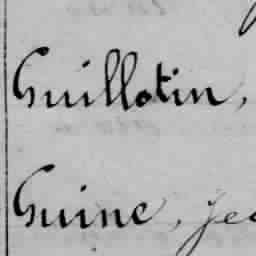 Guillotin,
Guine, Je